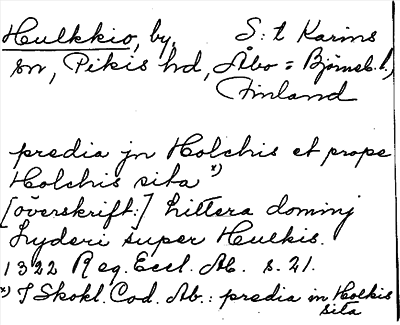 Hulkkio, by, S:t Karins
sn, Pikis hd, Åbo = Björneb. l.,
Finland
predia jn Holchis et prope
Holchis sita x)
[överskrift:] Littera dominj
Lyderi super Hulkis.
1322 Reg. Eccl. Ab. s. 21.
x) I Skokl. Cod. Ab.: predia in Holkis
sita